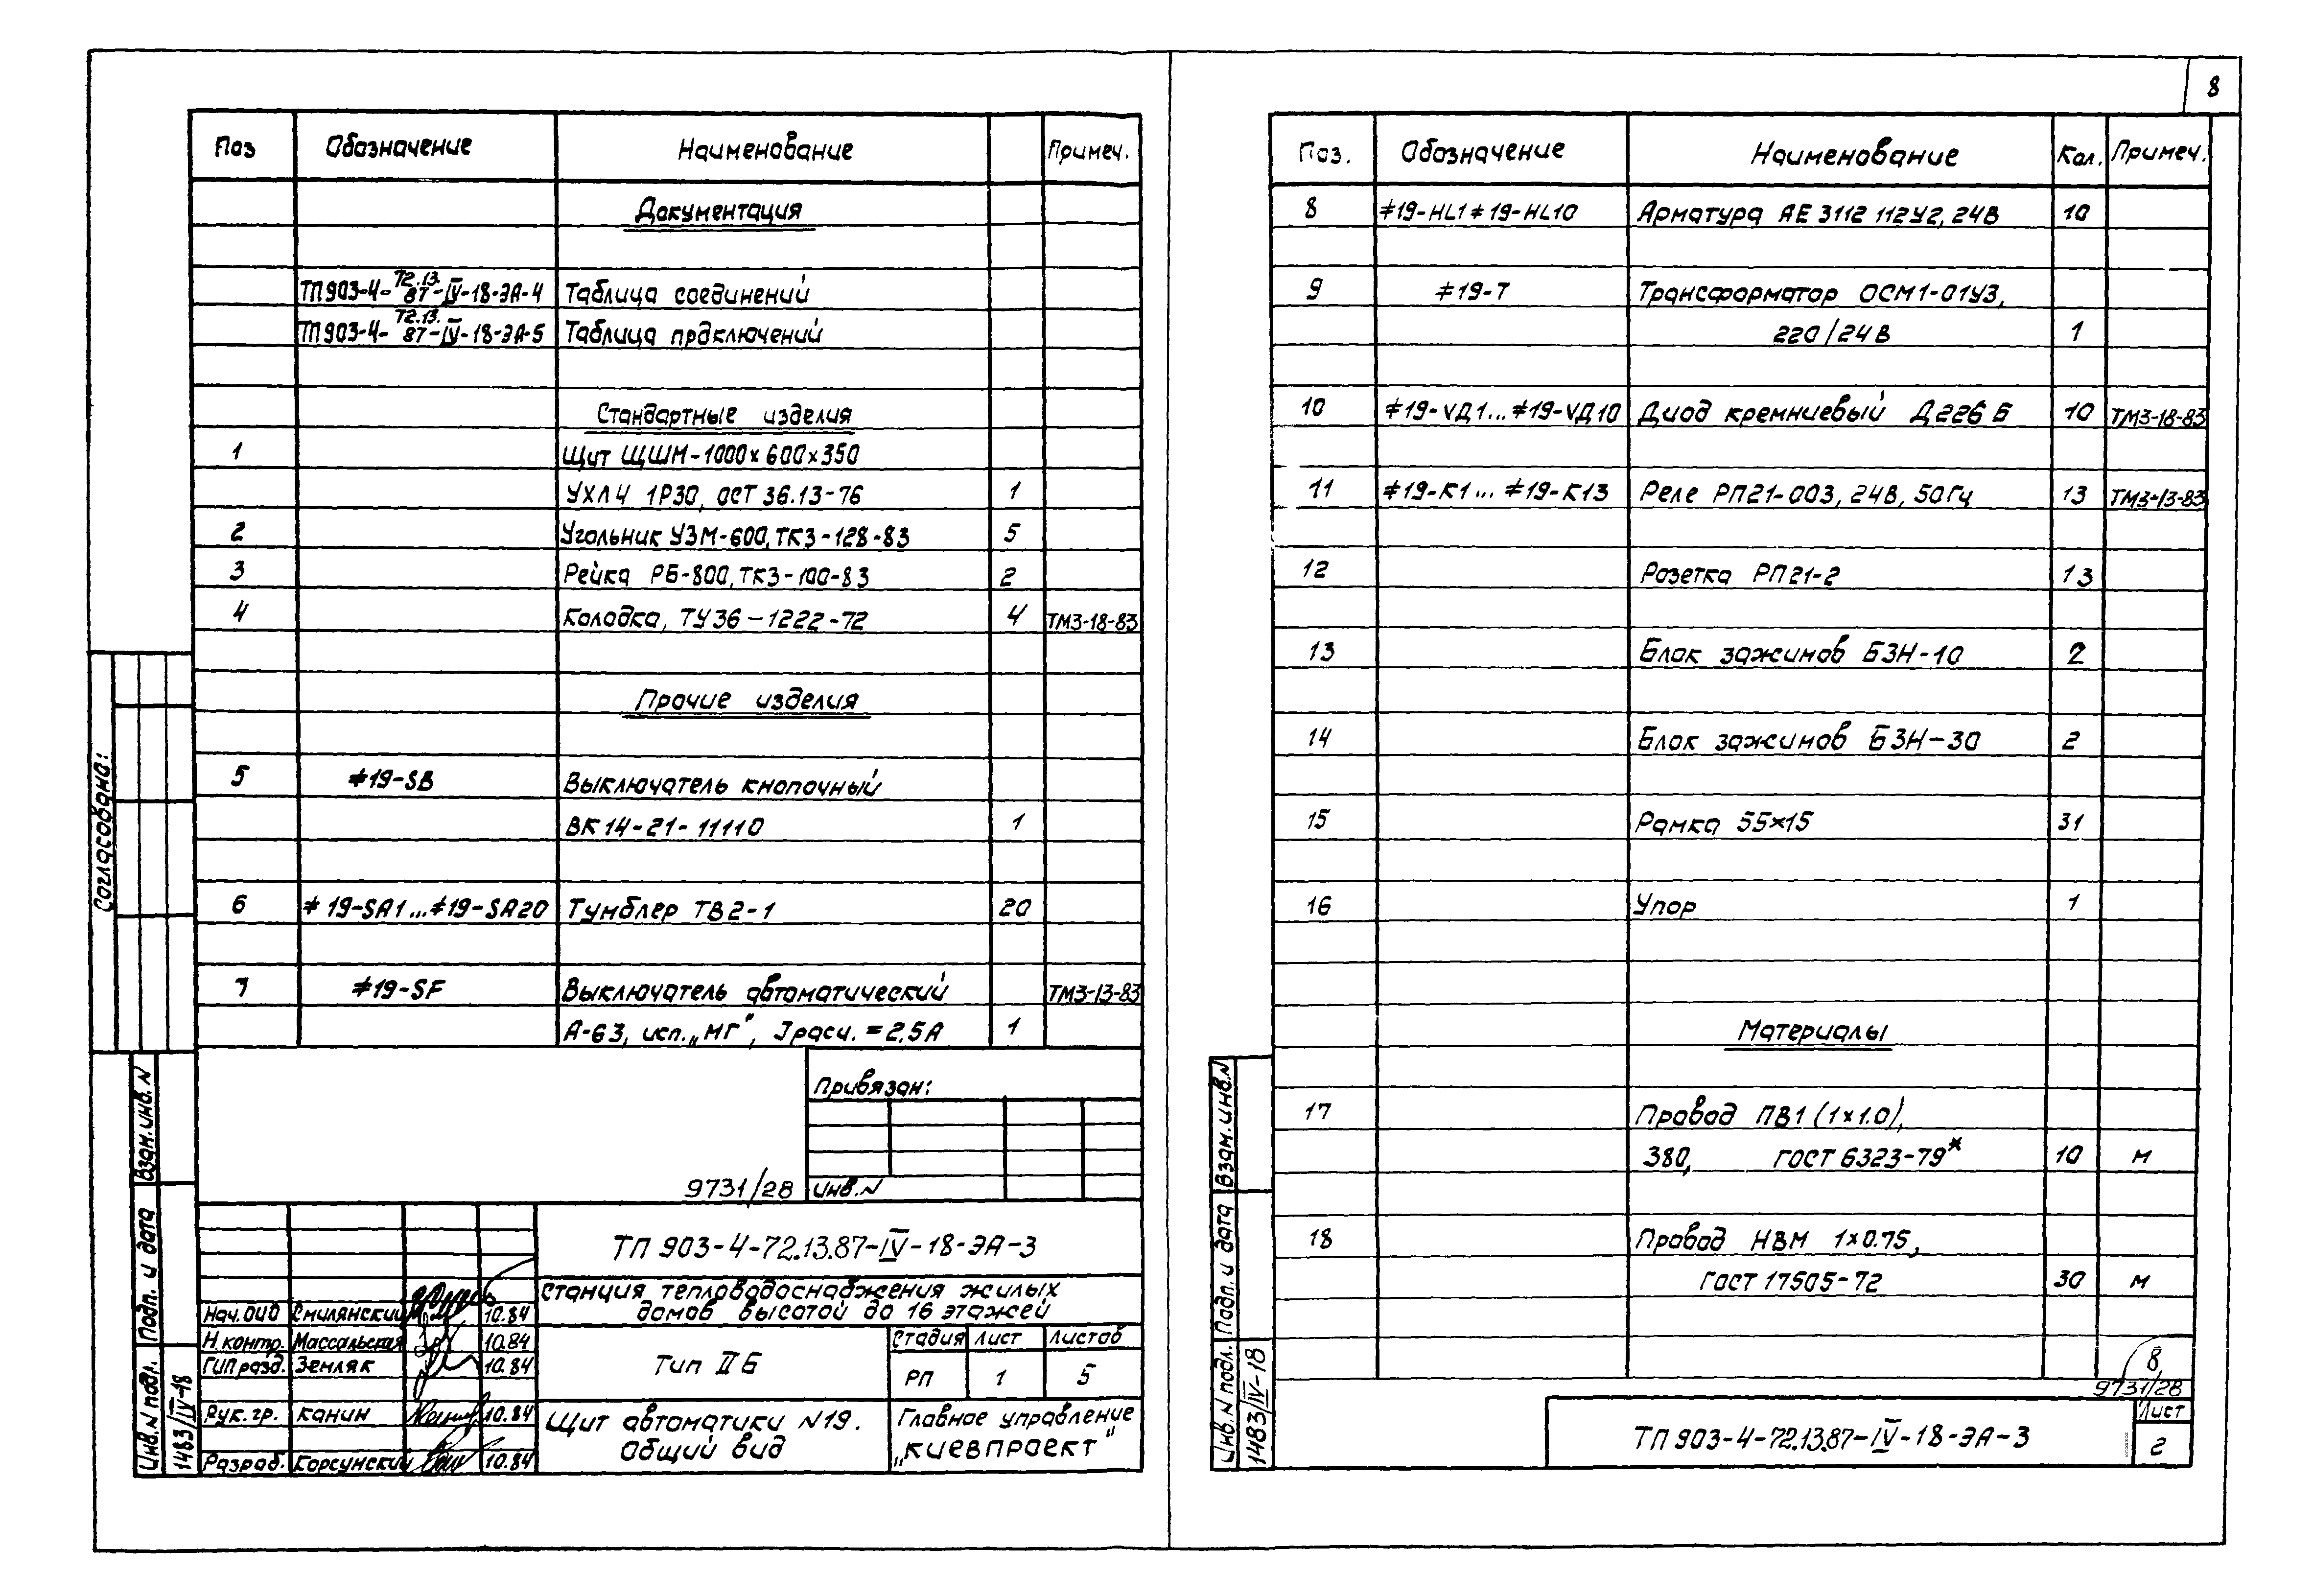 8
Поз Обозначение Наименование Примеч.
Документация
ТП903-4-72.13.87-IV-18-ЭА-4 Таблица соединений
ТП903-4-72.13.87-IV-18-ЭА-5 Таблица подключений
Стандартные изделия
1 Щит ЩШМ-1000×600×350
УХЛ4 1Р30, ОСТ 36.13-76 1
2 Угольник УЗМ-600, ТК3-128-83 5
3 Рейка РБ-800, ТК3-100-83 2
4 Колодка, ТУ36-1222-72 4 ТМ3-18-83
Прочие изделия
5 ≠19-SB Выключатель кнопочный
ВК14-21-11110 1
6 ≠19-SA1...≠19-SA20 Тумблер ТВ2-1 20
7 ≠19-SF Выключатель автоматический ТМ3-13-83
А-63, исп. „МГ", Jрасч. = 2,5А 1
Согласовано:
Привязан:
9731/28 Инв.N
Взам.инв.N
Подп. и дата
Инв.N подл.
1483/IV-18
ТП 903-4-72.13.87-IV-18-ЭА-3
Станция тепловодоснабжения жилых
домов высотой до 16 этажей
Нач.ОИО Смилянский 10.84
Н.контр. Массальская 10.84
ГИП разд. Земляк 10.84
Рук.гр. Канин 10.84
Разраб. Корсунский 10.84
Тип II Б
Стадия Лист Листов
РП 1 5
Щит автоматики N19.
Общий вид
Главное управление
„Киевпроект"
Поз. Обозначение Наименование Кол. Примеч.
8 ≠19-HL1≠19-HL10 Арматура АЕ 3112 112У2, 24В 10
9 ≠19-Т Трансформатор ОСМ1-01У3,
220/24В 1
10 ≠19-VД1...≠19-VД10 Диод кремниевый Д226Б 10 ТМ3-18-83
11 ≠19-К1... ≠19-К13 Реле РП21-003, 24В, 50Гц 13 ТМ3-13-83
12 Розетка РП21-2 13
13 Блок зажимов БЗН-10 2
14 Блок зажимов БЗН-30 2
15 Рамка 55×15 31
16 Упор 1
Материалы
17 Провод ПВ1 (1×1.0),
380, ГОСТ 6323-79* 10 м
18 Провод НВМ 1×0.75,
ГОСТ 17505-72 30 м
Взам.инв.N
Подп. и дата
Инв.N подл.
1483/IV-18
8
9731/28
ТП 903-4-72.13.87-IV-18-ЭА-3
Лист
2